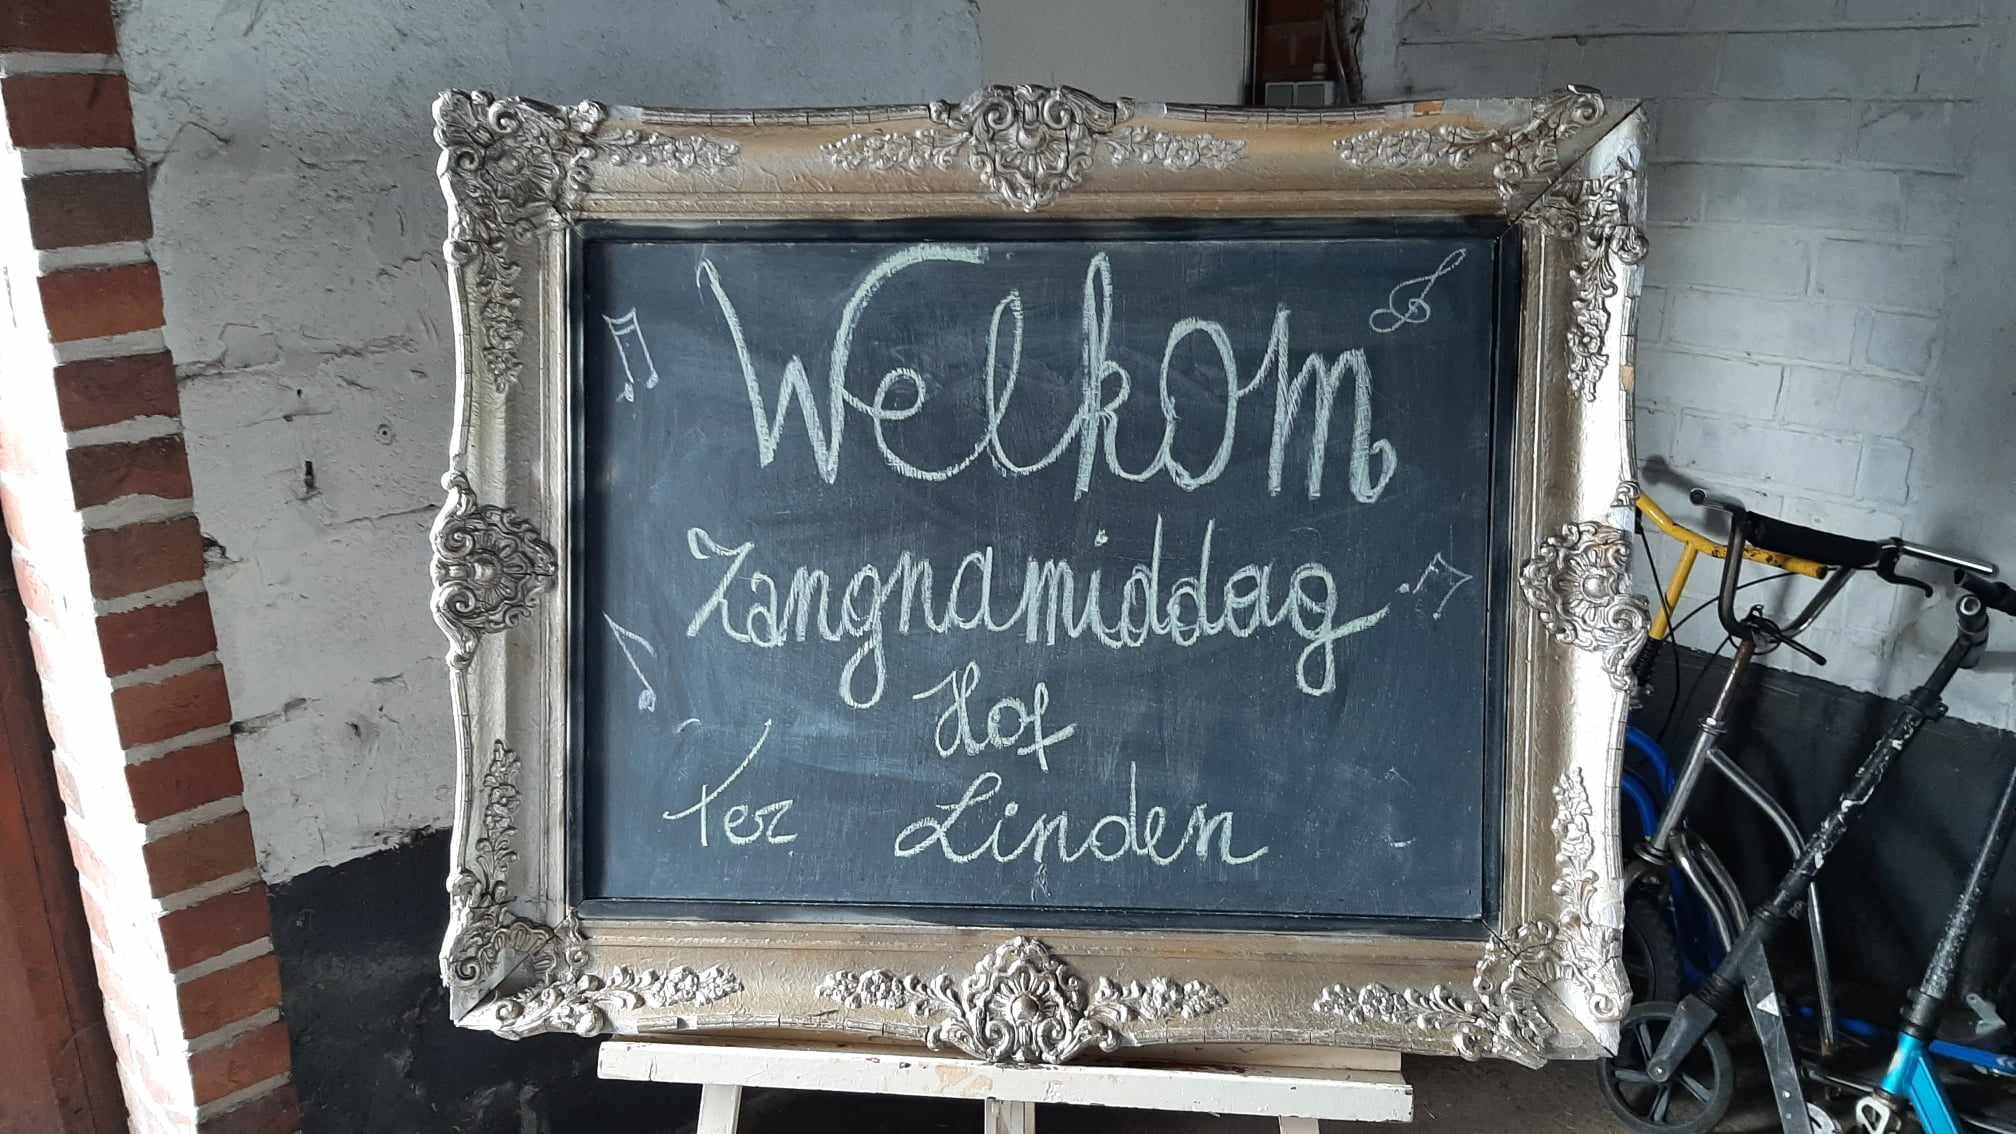 Welkom
Zangnamiddag
Hof
Ter Linden